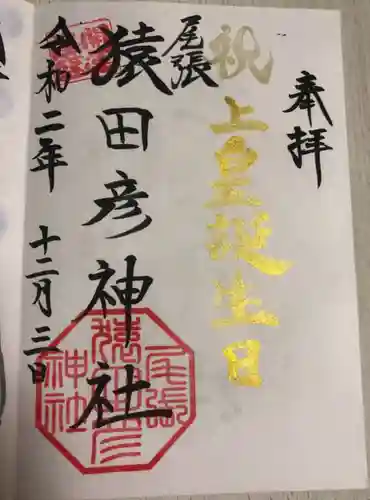 奉拝
祝上皇誕生日
尾張
猿田彦神社
令和二年十二月三日
尾張
猿田彦
神社